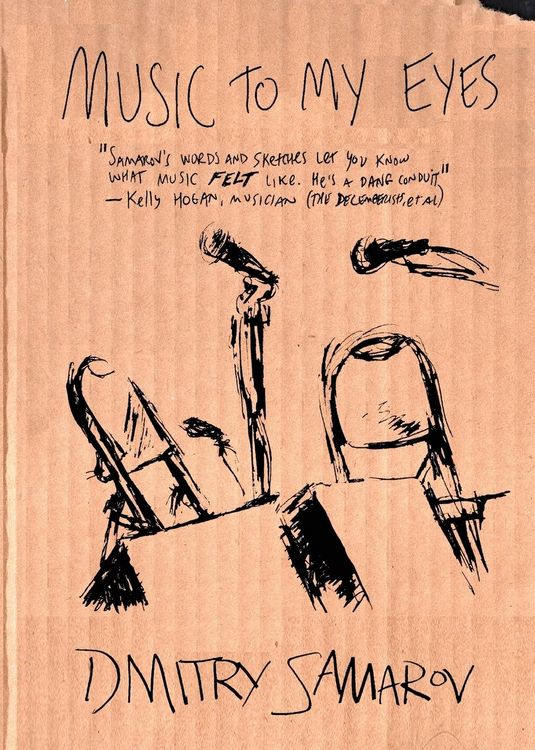 MUSIC TO MY EYES
"SAMAROV'S WORDS AND SKETCHES LET YOU KNOW
WHAT MUSIC FELT LIKE. HE'S A DANG CONDUIT"
— KELLY HOGAN, MUSICIAN (THE DECEMBERISTS, et al)
DMITRY SAMAROV